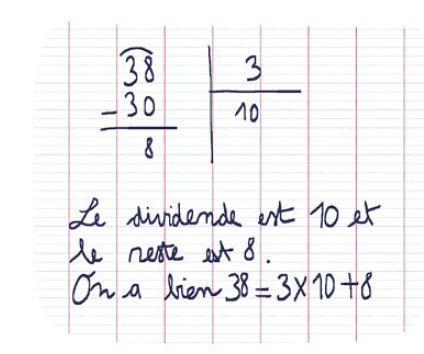 38 3
- 30 10
8
Le dividende est 10 et
le reste est 8.
On a bien 38 = 3 × 10 + 8